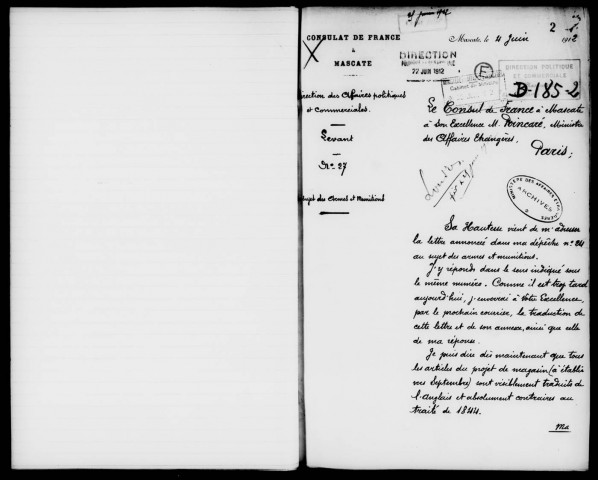 2
CONSULAT DE FRANCE
à
MASCATE
Mascate, le 4 Juin 1912
DIRECTION
22 JUIN 1912
E
DIRECTION POLITIQUE
ET COMMERCIALE
D-185-2
Direction des Affaires politiques
et commerciales.
Levant
N° 27
Sujet des Armes et Munitions
Le Consul de France à Mascate
à Son Excellence M. Poincaré, Ministre
des Affaires Etrangères,
Paris;
MINISTÈRE DES AFFAIRES ETRANGÈRES
ARCHIVES
Sa Hautesse vient de m'adresser
la lettre annoncée dans ma dépêche n° 24
au sujet des armes et munitions.
J'y réponds dans le sens indiqué sous
le même numéro. Comme il est trop tard
aujourd'hui, j'enverrai à Votre Excellence,
par le prochain courrier, la traduction de
cette lettre et de son annexe, ainsi que celle
de ma réponse.
Je puis dire dès maintenant que tous
les articles du projet de magasin (à établir
vers Septembre) sont visiblement traduits de
l'Anglais et absolument contraires au
traité de 1844.
Ma